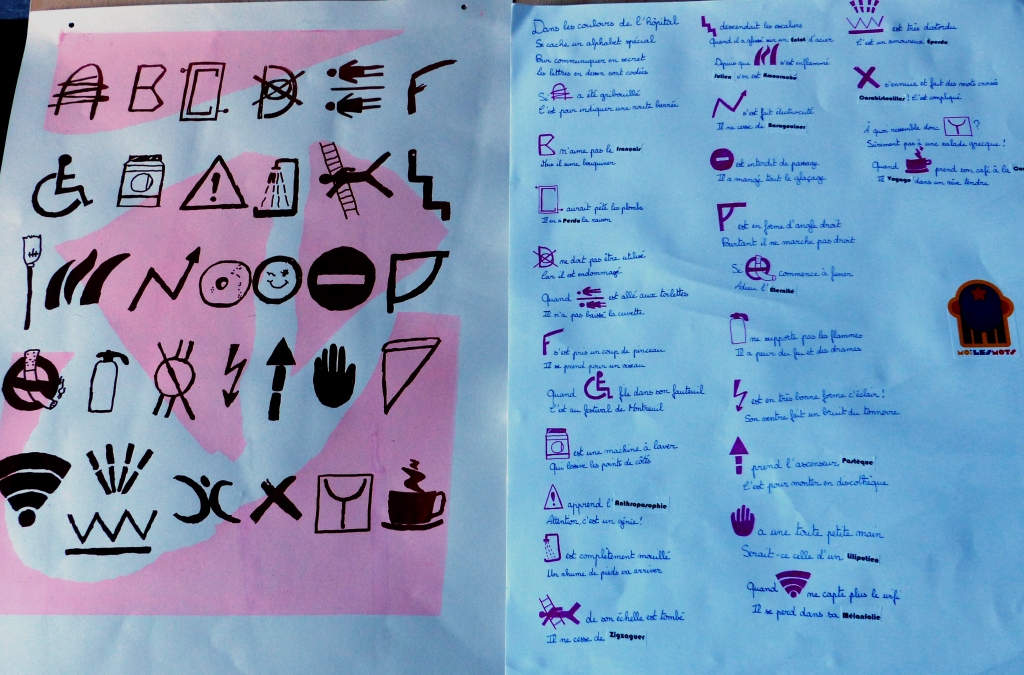 B
F
Dans les couloirs de l'hôpital
Se cache un alphabet spécial
Pour communiquer en secret
les lettres en dessin sont codées
Si a été gribouillé
C'est pour indiquer une route barrée
B n'aime pas le français
Mais il aime bouquiner
aurait pété les plombs
Il en a Perdu la raison
ne doit pas être utilisé
Car il est endommagé
Quand est allé aux toilettes
Il n'a pas baissé la cuvette
F s'est pris un coup de pinceau
Il se prend pour un oiseau
Quand file dans son fauteuil
C'est au festival de Montreuil
est une machine à laver
Qui lessive les points de côtés
apprend l'Anthroposophie
Attention c'est un génie!
est complètement mouillé
Un rhume de pieds va arriver
de son échelle est tombé
Il ne cesse de Zigzaguer
descendait les escaliers
Quand il a glissé sur un Éclat d'acier
Depuis que s'est enflammé
Julien s'en est Amouraché
s'est fait électrocuté
Il ne cesse de Baragouiner
est interdit de passage
Il a mangé tout le glaçage
P est en forme d'angle droit
Pourtant il ne marche pas droit
Si commence à fumer
Adieu l'Éternité
ne supporte pas les flammes
Il a peur du feu et des drames
est en très bonne forme c'éclair!
Son ventre fait un bruit du tonnerre
prend l'ascenseur Pastèque
C'est pour monter en discothèque
a une toute petite main
Serait-ce celle d'un lilliputien
Quand ne capte plus le wifi
Il se perd dans sa Mélanfolie
est très distordu
C'est un amoureux Éperdu
X s'ennuie et fait des mots croisés
Carabistouiller! C'est compliqué
À quoi ressemble donc ?
Sûrement pas à une salade grecque!
Quand prend son café à la
Il Vogage dans un rêve tendre
MOI LES MOTS